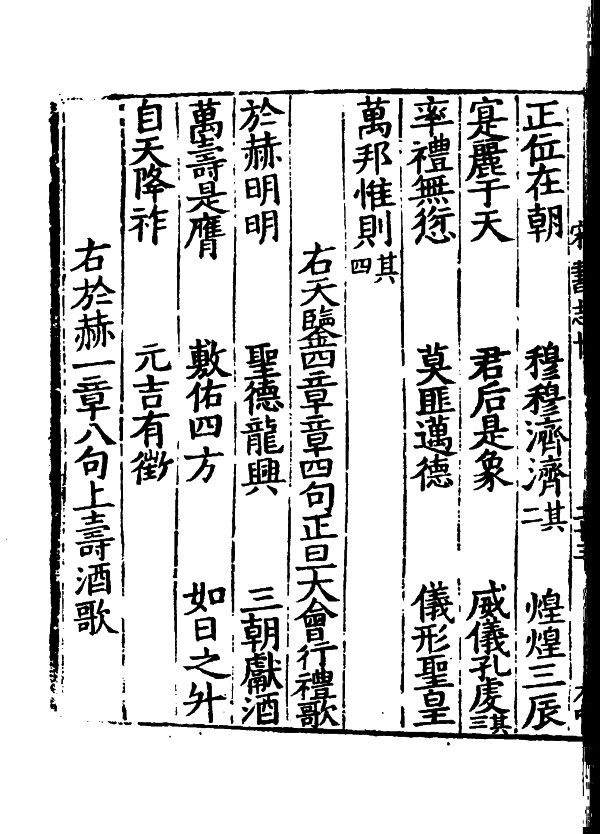 正位在朝　穆穆濟濟其二　煌煌三辰
寔麗于天　君后是象　威儀孔虔其三
率禮無愆　莫匪邁德　儀形聖皇
萬邦惟則其四
右天鑒四章章四句正旦大會行禮歌
於赫明明　聖德龍興　三朝獻酒
萬壽是膺　敷佑四方　如日之升
自天降祚　元吉有徵
右於赫一章八句上壽酒歌